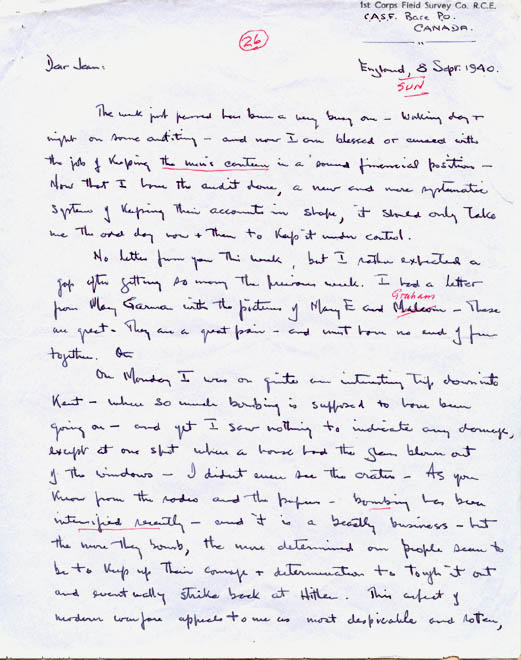 1st Corps Field Survey Co. R.C.E.
C.A.S.F. Base P.O.
CANADA.
26
Dear Jean:
England, 8 Sept. 1940.
SUN
The week just passed has been a very busy one - Working day +
night on some auditing - and now I am blessed or cursed with
the job of keeping the men's canteen in a sound financial position -
Now that I have the audit done, a new and more systematic
system of keeping their accounts in shape, it should only take
me the odd day now + then to keep it under control.
No letter from you this week, but I rather expected a
gap after getting so many the previous week. I had a letter
Grahams
from Mary with the pictures of Mary E and Malcolm - These
are great - They are a great pair - and must have no end of fun
together.
On Monday I was on quite an interesting trip down into
Kent - where so much bombing is supposed to have been
going on - and yet I saw nothing to indicate any damage,
except at one spot where a house had the glass blown out
of the windows - I didnt even see the crater - As you
know from the radio and the papers - bombing has been
intensified recently - and it is a beastly business - but
the more they bomb, the more determined our people seem to
be to keep up their courage + determination to tough it out
and eventually strike back at Hitler. This aspect of
modern warfare appeals to me as most despicable and rotten,